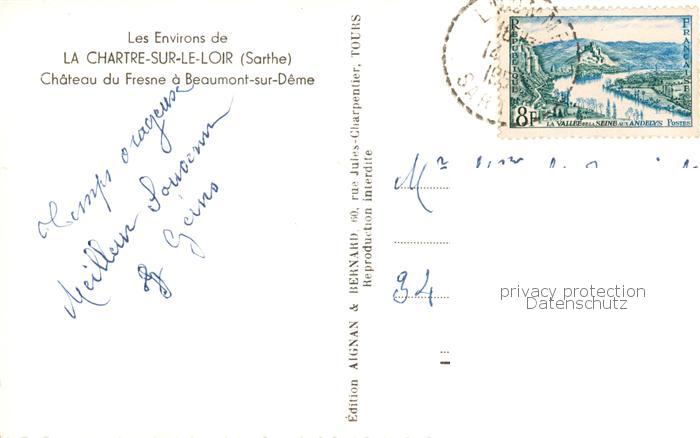 Les Environs de
LA CHARTRE-SUR-LE-LOIR (Sarthe)
Château du Fresne à Beaumont-sur-Dême
Temps orageux
Meilleur Souvenir
Édition AIGNAN & BERNARD, 60, rue Jules-Charpentier, TOURS
Reproduction interdite
RÉPUBLIQUE
FRANÇAISE
8F
LA VALLÉE DE LA SEINE AUX ANDELYS POSTES
94
privacy protection
Datenschutz